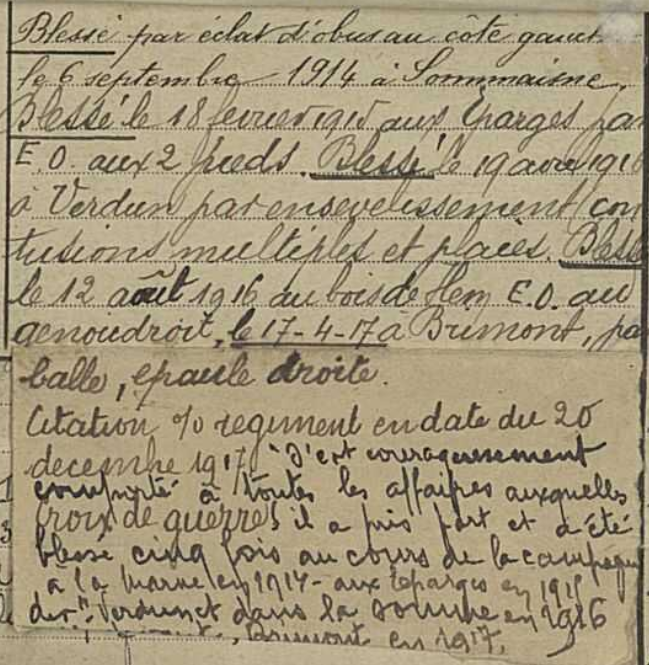 Blessé par éclat d'obus au côté gauch
le 6 septembre 1914 à Sommaisne.
Blessé le 18 fevrier 1915 aux Eparges par
E.O. aux 2 pieds. Blessé le 19 avril 1916
à Verdun par ensevelissement (con
tusions multiples et plaies. Blessé
le 12 août 1916 au bois de Hem E.O. au
genou droit, le 17-4-17 à Brimont, par
balle, epaule droite.
Citation % regiment en date du 20
decembre 1917, "S'est courageusement
comporté à toutes les affaires auxquelles
Croix de guerre
il a pris part et a été
blessé cinq fois au cours de la campagne
a la Marne en 1914 - aux Eparges en 1915
Verdun et dans la Somme en 1916
Brimont en 1917.